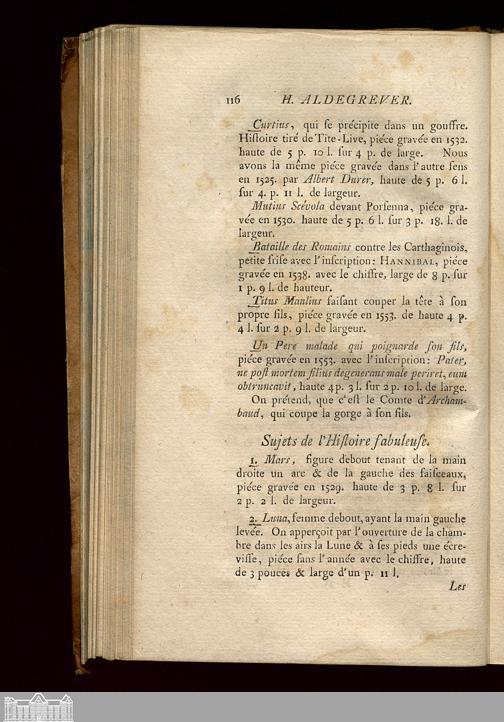 116 H. ALDEGREVER.
Curtius, qui se précipite dans un gouffre.
Histoire tiré de Tite-Live, piéce gravée en 1532.
haute de 5 p. 10 l. sur 4 p. de large. Nous
avons la même piéce gravée dans l'autre sens
en 1525. par Albert Durer, haute de 5 p. 6 l.
sur 4. p. 11 l. de largeur.
Mutius Scévola devant Porsenna, piéce gra-
vée en 1530. haute de 5 p. 6 l. sur 3 p. 18. l. de
largeur.
Bataille des Romains contre les Carthaginois,
petite frise avec l'inscription: HANNIBAL, piéce
gravée en 1538. avec le chiffre, large de 8 p. sur
1 p. 9 l. de hauteur.
Titus Manlius faisant couper la tête à son
propre fils, piéce gravée en 1553. de haute 4 p.
4 l. sur 2 p. 9 l. de largeur.
Un Pere malade qui poignarde son fils,
piéce gravée en 1553. avec l'inscription: Pater,
ne post mortem filius degenerans male periret, eum
obtruncavit, haute 4 p. 3 l. sur 2 p. 10 l. de large.
On prétend, que c'est le Comte d'Archam-
baud, qui coupe la gorge à son fils.
Sujets de l'Histoire fabuleuse.
1. Mars, figure debout tenant de la main
droite un arc & de la gauche des faisceaux,
piéce gravée en 1529. haute de 3 p. 8 l. sur
2 p. 2 l. de largeur.
2. Luna, femme debout, ayant la main gauche
levée. On apperçoit par l'ouverture de la cham-
bre dans les airs la Lune & à ses pieds une écre-
visse, piéce sans l'année avec le chiffre, haute
de 3 pouces & large d'un p. 11 l.
Les